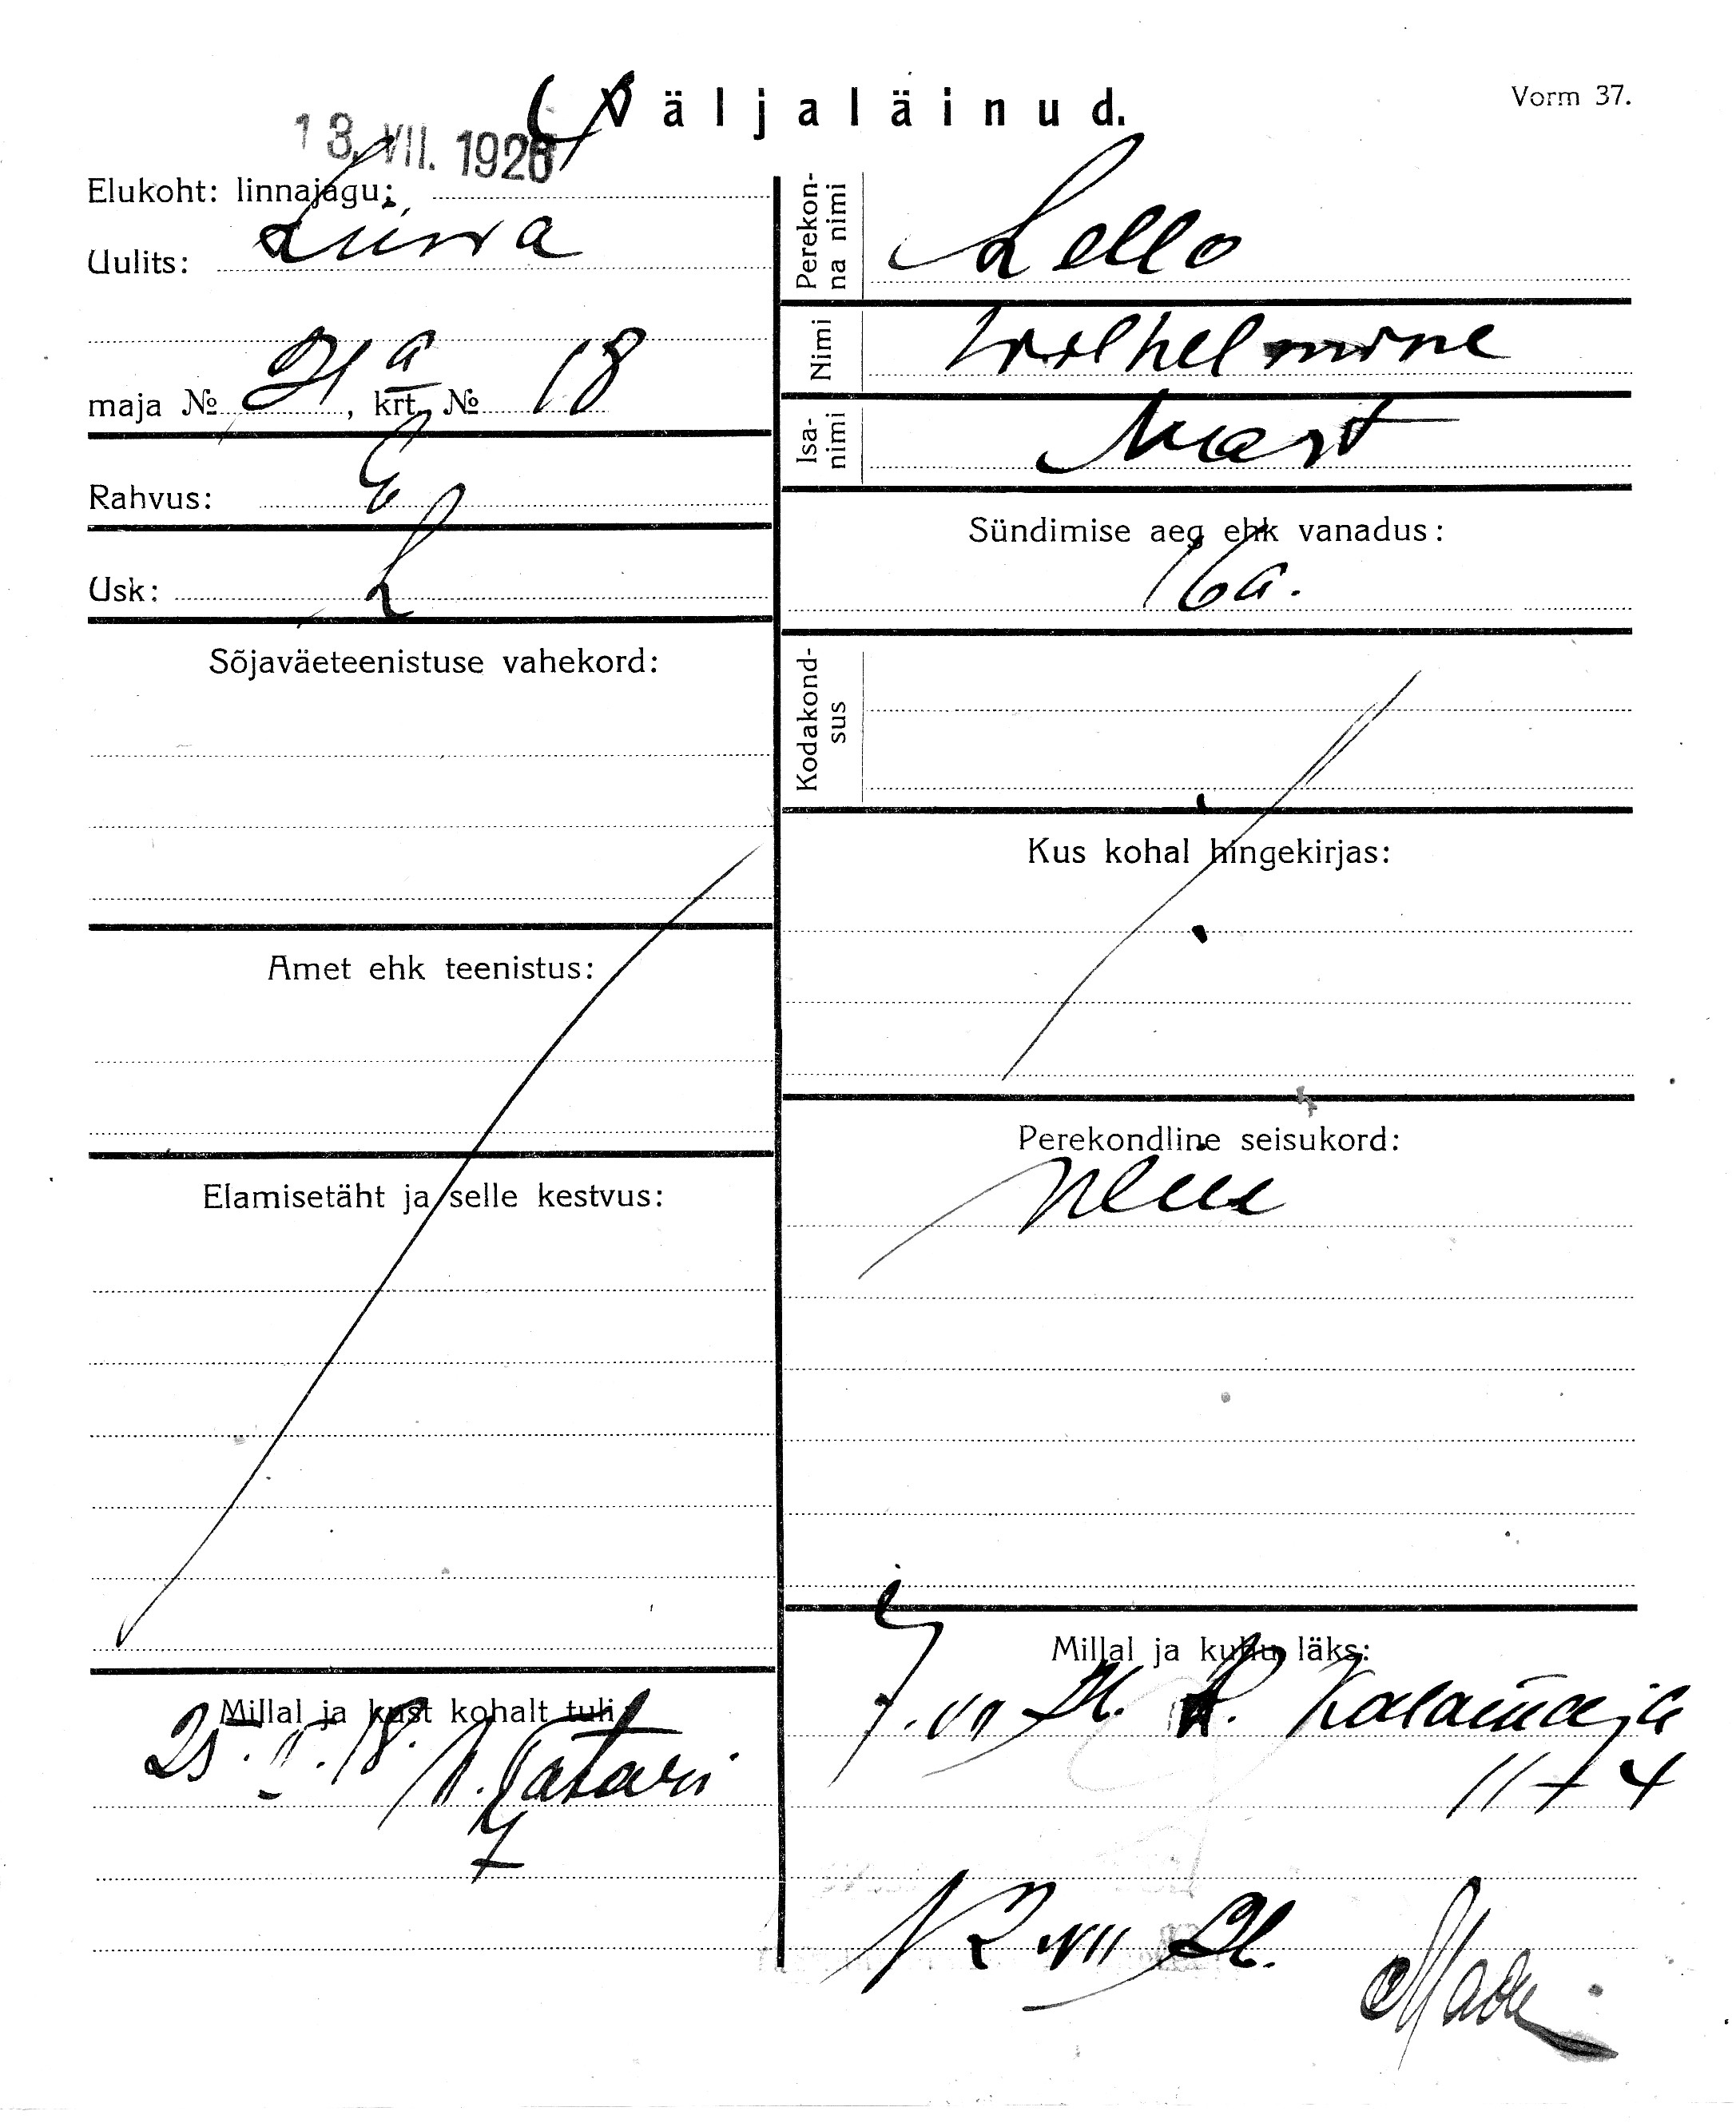 Väljaläinud.
Vorm 37.
13. VII. 1926
Elukoht: linnajagu:
Uulits: Liiva
maja № 21a, krt. № 18
Rahvus: E
Usk: L
Sõjaväeteenistuse vahekord:
Amet ehk teenistus:
Elamisetäht ja selle kestvus:
Millal ja kust kohalt tuli:
25. II. 18. Tatari
7
Perekonna nimi Lello
Nimi Wilhelmine
Isanimi Mart
Sündimise aeg ehk vanadus:
16 a.
Kodakondsus
Kus kohal hingekirjas:
Perekondline seisukord:
Millal ja kuhu läks:
7. VII Kalamaja
11 - 4
12 VII